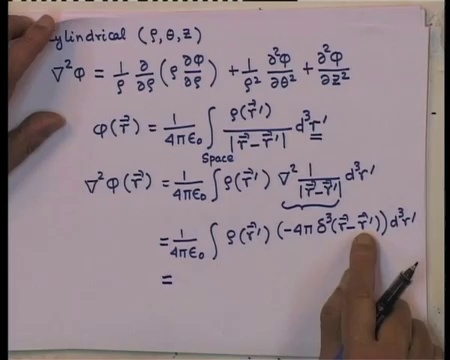 Cylindrical (ρ, θ, z)
∇²φ = 1/ρ ∂/∂ρ (ρ ∂φ/∂ρ) + 1/ρ² ∂²φ/∂θ² + ∂²φ/∂z²
φ(r⃗) = 1/4πε₀ ∫ ρ(r⃗′)/|r⃗−r⃗′| d³r′
Space
∇²φ(r⃗) = 1/4πε₀ ∫ ρ(r⃗′) ∇² 1/|r⃗−r⃗′| d³r′
= 1/4πε₀ ∫ ρ(r⃗′) (−4π δ³(r⃗−r⃗′)) d³r′
=